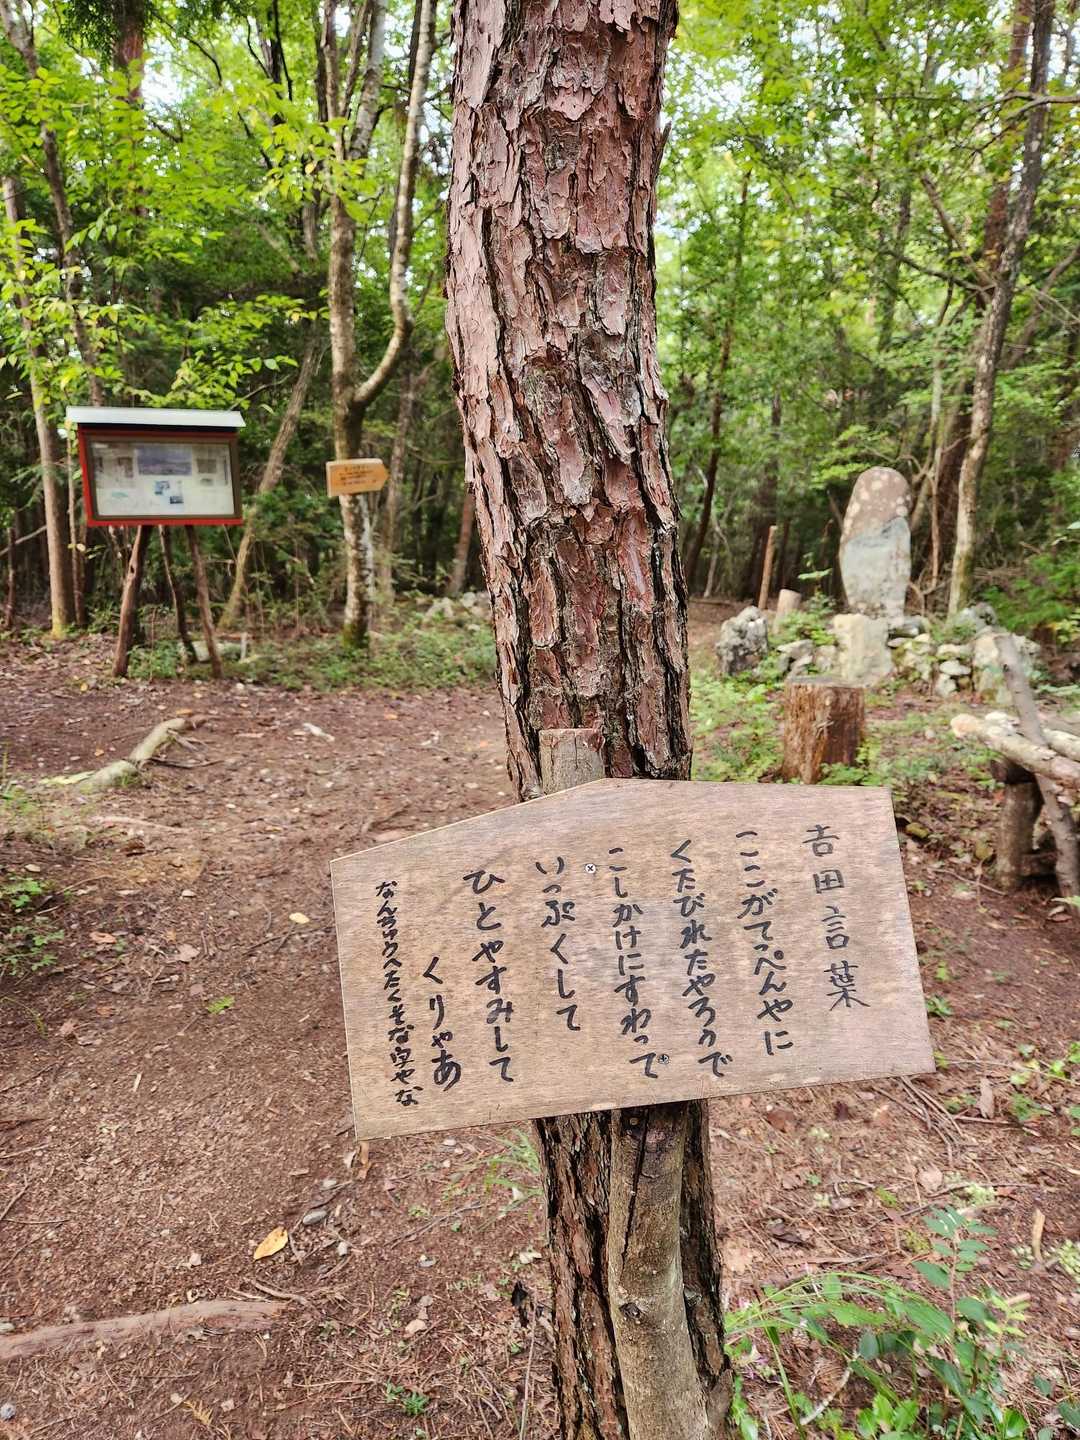 吉田言葉
ここがてっぺんやに
くたびれたやろうで
こしかけにすわって
いっぷくして
ひとやすみして
くりゃあ
なんちゅうへたくそな字やな